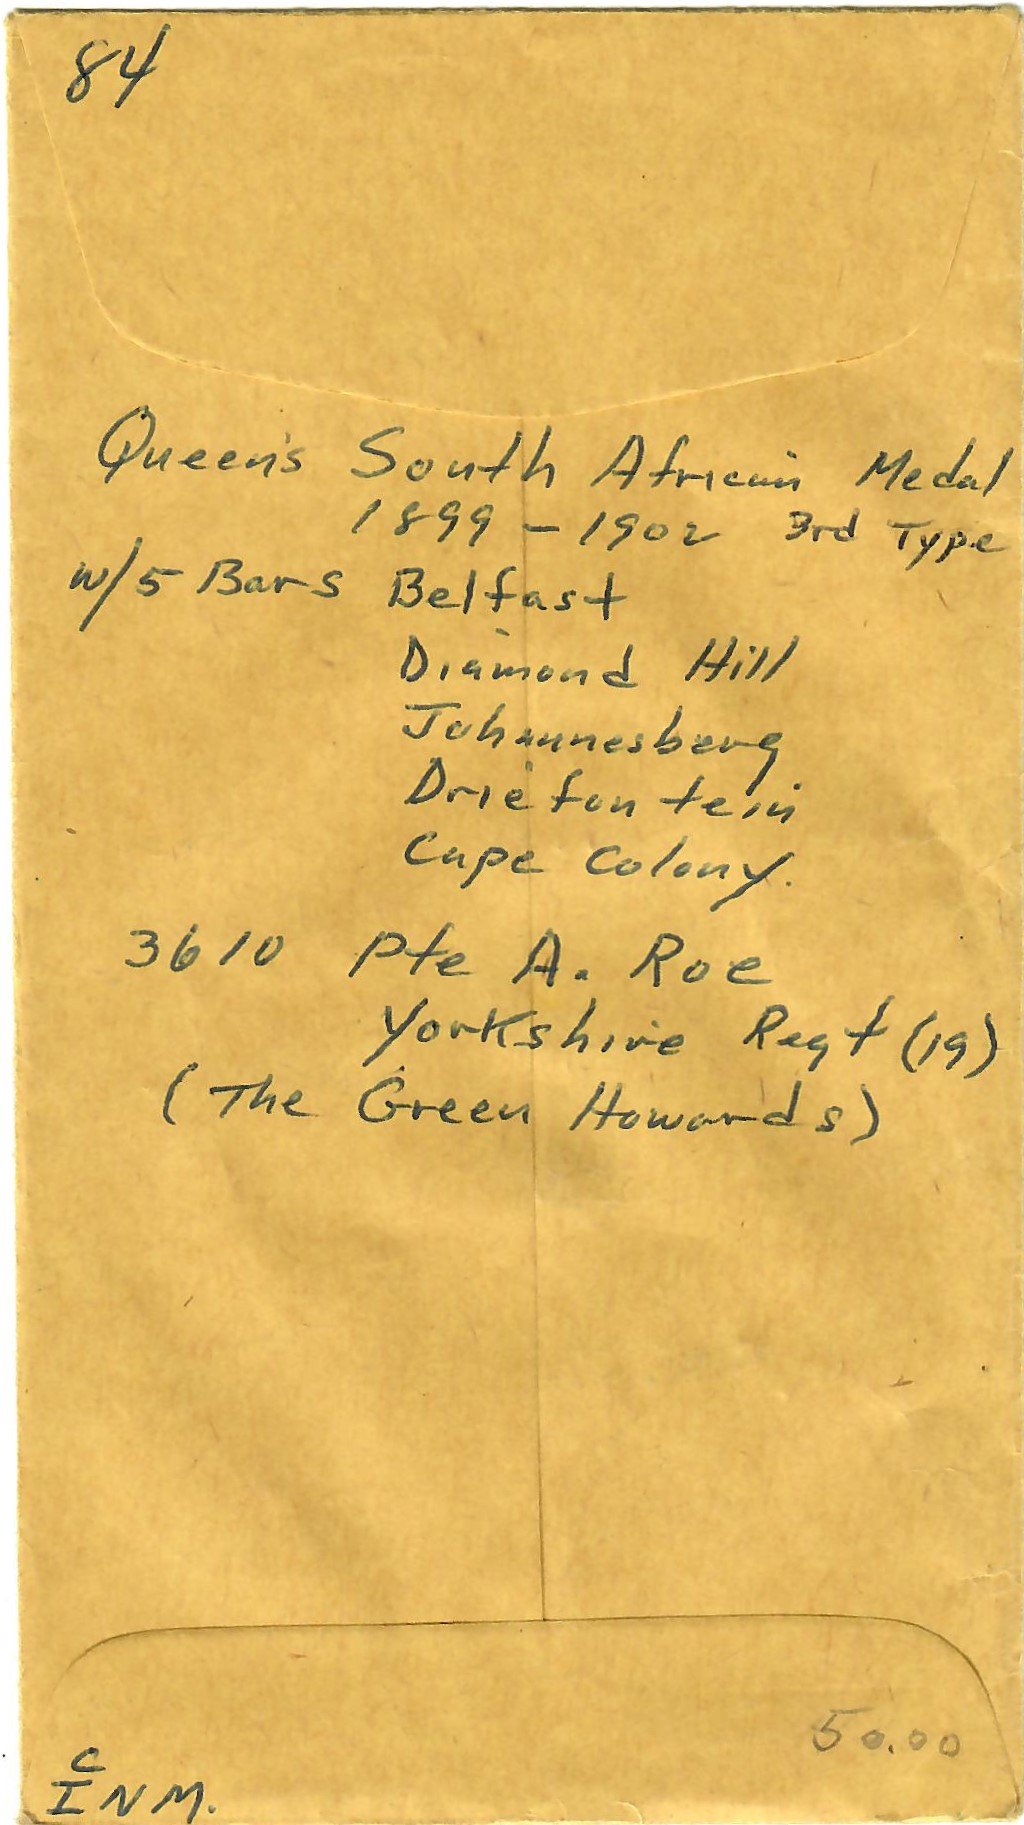 84
Queen's South African Medal
1899 - 1902 3rd Type
w/5 Bars Belfast
Diamond Hill
Johannesberg
Driefontein
Cape Colony.
3610 Pte A. Roe
Yorkshire Regt (19)
(The Green Howards)
50.00
C
I N M.